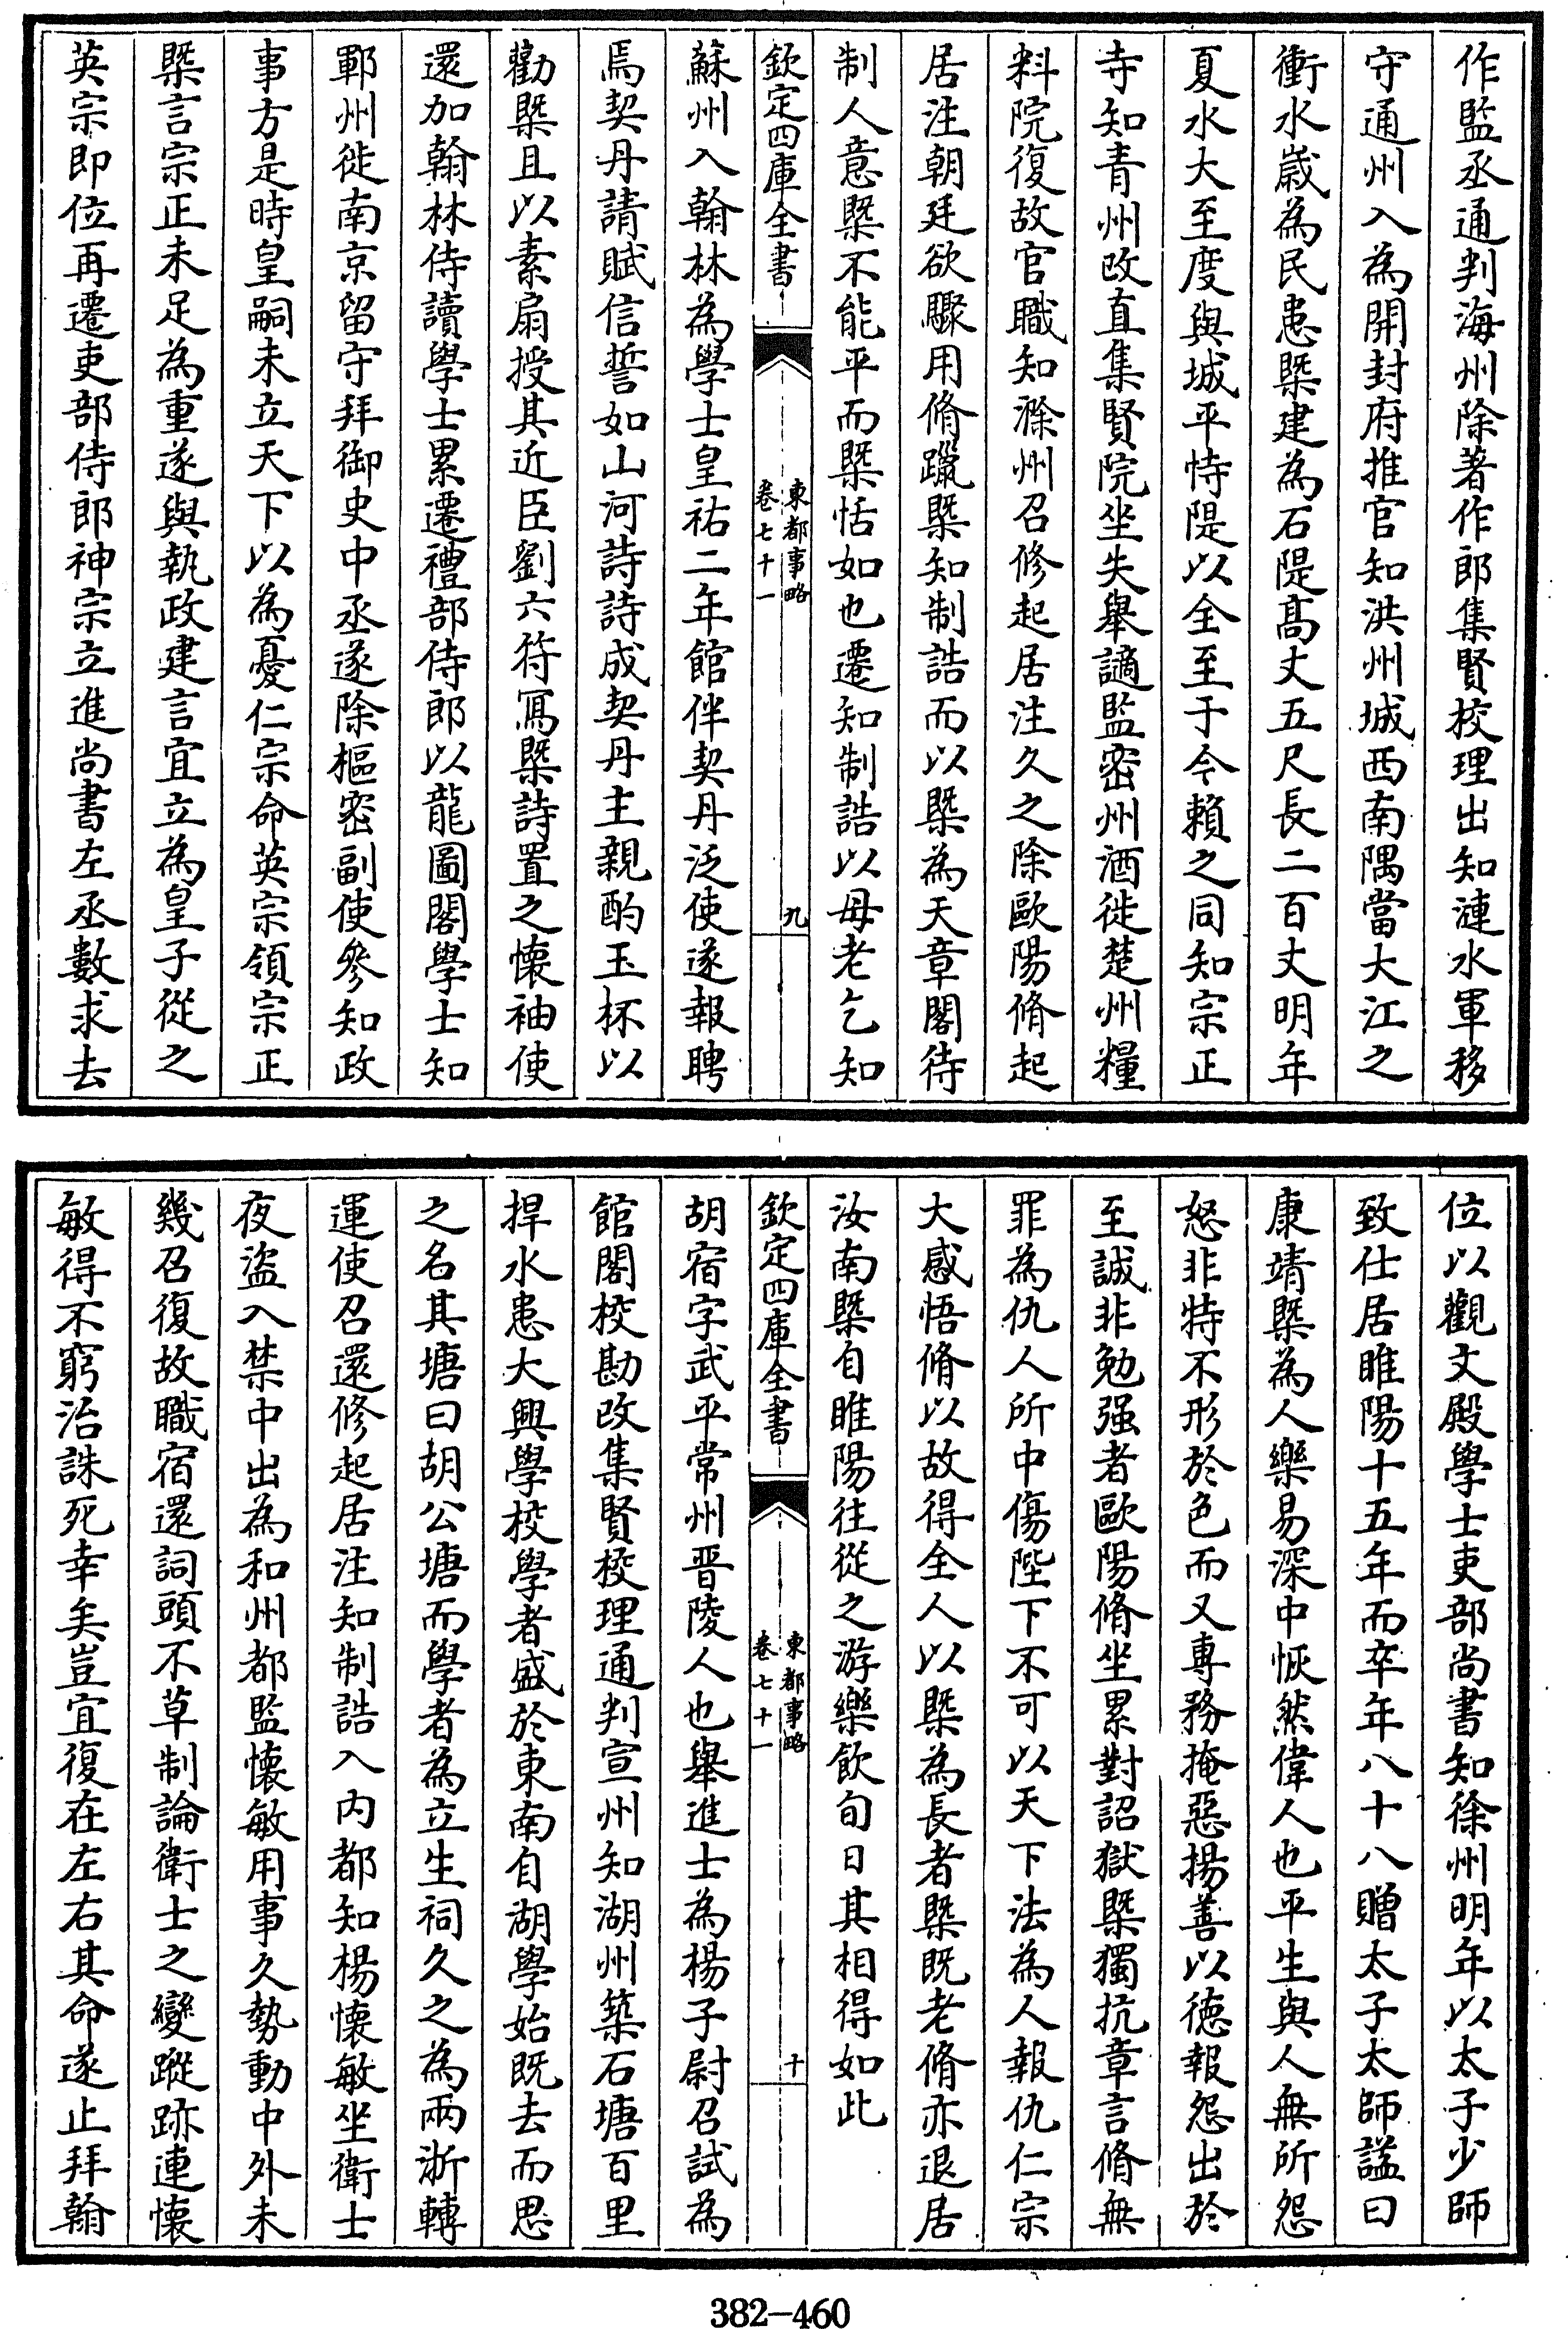 作監丞通判海州除著作郎集賢校理出知漣水軍移
守通州入為開封府推官知洪州城西南隅當大江之
衝水嵗為民患槩建為石隄髙丈五尺長二百丈明年
夏水大至度與城平恃隄以全至于今賴之同知宗正
寺知青州改直集賢院坐失舉謫監密州酒徙楚州糧
料院復故官職知滁州召修起居注久之除歐陽脩起
居注朝廷欲驟用脩躐槩知制誥而以槩為天章閣待
制人意槩不能平而槩恬如也遷知制誥以母老乞知
欽定四庫全書
東都事略
卷七十一
九
蘇州入翰林為學士皇祐二年館伴契丹泛使遂報聘
焉契丹請賦信誓如山河詩詩成契丹主親酌玉杯以
勸槩且以素扇授其近臣劉六符寫槩詩置之懷袖使
還加翰林侍讀學士累遷禮部侍郎以龍圖閣學士知
鄆州徙南京留守拜御史中丞遂除樞密副使參知政
事方是時皇嗣未立天下以為憂仁宗命英宗領宗正
槩言宗正未足為重遂與執政建言宜立為皇子從之
英宗即位再遷吏部侍郎神宗立進尚書左丞數求去
位以觀文殿學士吏部尚書知徐州明年以太子少師
致仕居睢陽十五年而卒年八十八贈太子太師諡曰
康靖槩為人樂易深中恢然偉人也平生與人無所怨
怒非特不形於色而又專務掩惡揚善以徳報怨出於
至誠非勉强者歐陽脩坐累對詔獄槩獨抗章言脩無
罪為仇人所中傷陛下不可以天下法為人報仇仁宗
大感悟脩以故得全人以槩為長者槩既老脩亦退居
汝南槩自睢陽往從之游樂飲旬日其相得如此
欽定四庫全書
東都事略
卷七十一
十
胡宿字武平常州晉陵人也舉進士為楊子尉召試為
館閣校勘改集賢校理通判宣州知湖州築石塘百里
捍水患大興學校學者盛於東南自湖學始既去而思
之名其塘曰胡公塘而學者為立生祠久之為兩浙轉
運使召還修起居注知制誥入內都知楊懷敏坐衛士
夜盜入禁中出為和州都監懷敏用事久勢動中外未
幾召復故職宿還詞頭不草制論衛士之變蹤跡連懷
敏得不窮治誅死幸矣豈宜復在左右其命遂止拜翰
382-460